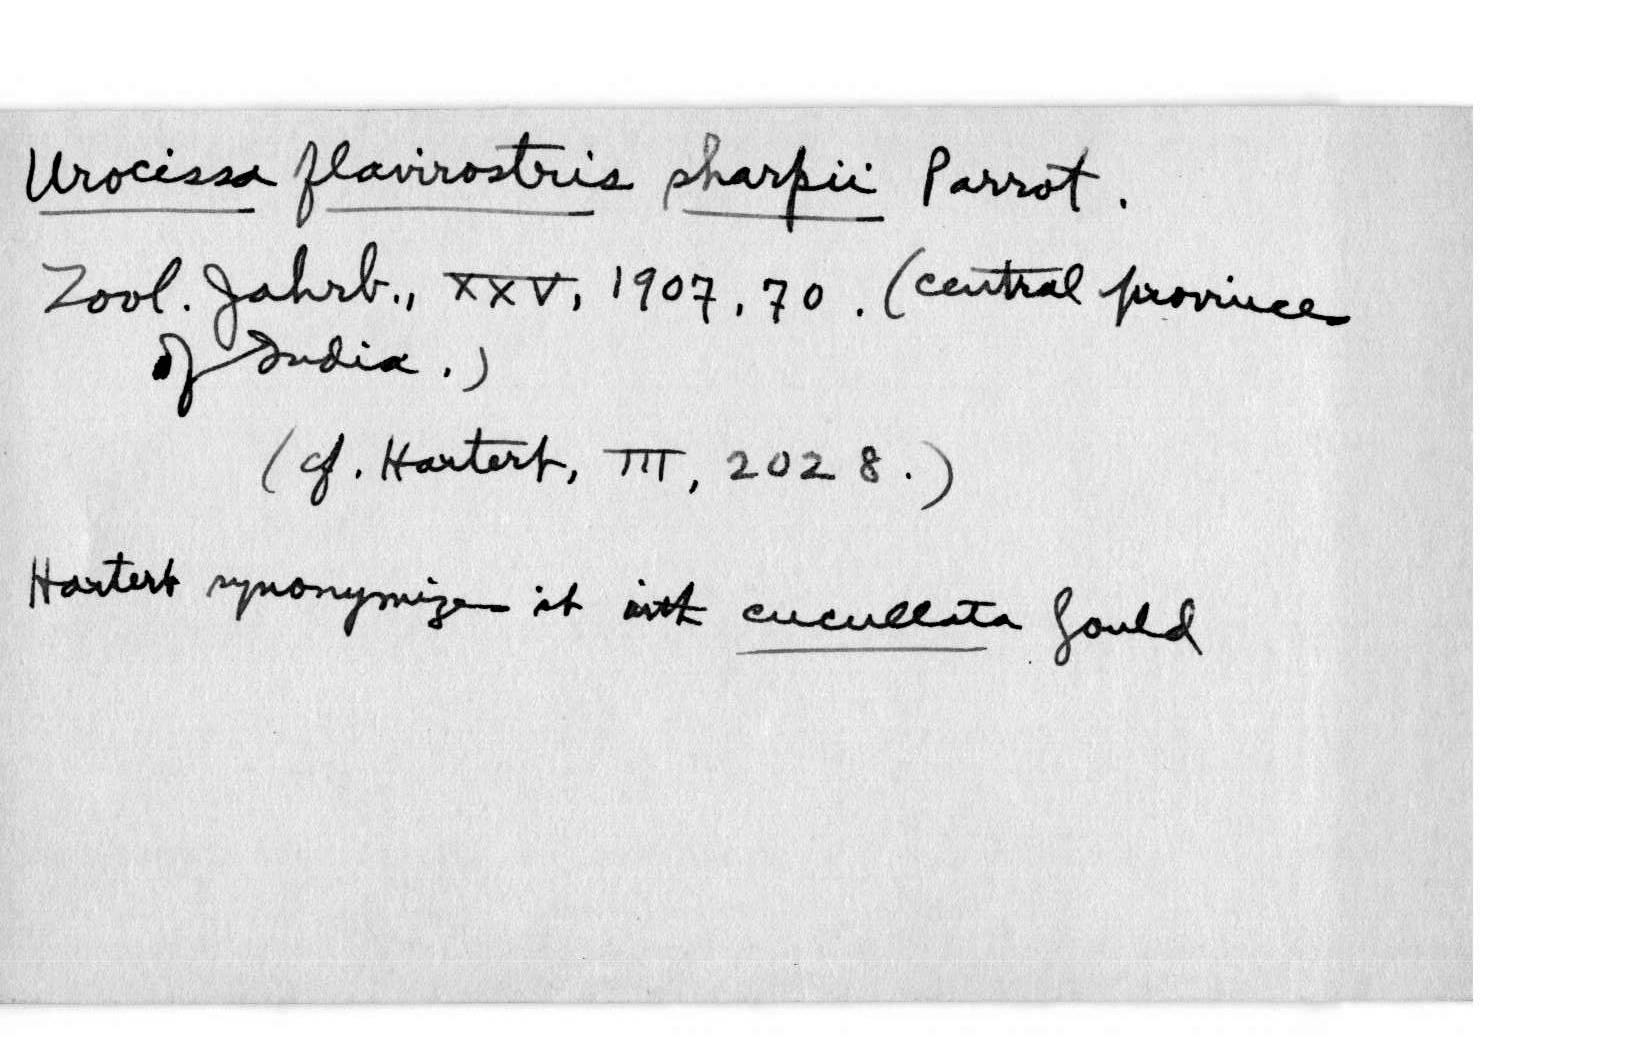 Urocissa flavirostris sharpii Parrot.
Zool. Jahrb., XXV, 1907, 70. (central province
of India.)
(cf. Hartert, III, 2028.)
Hartert synonymizes it with cucullata Gould